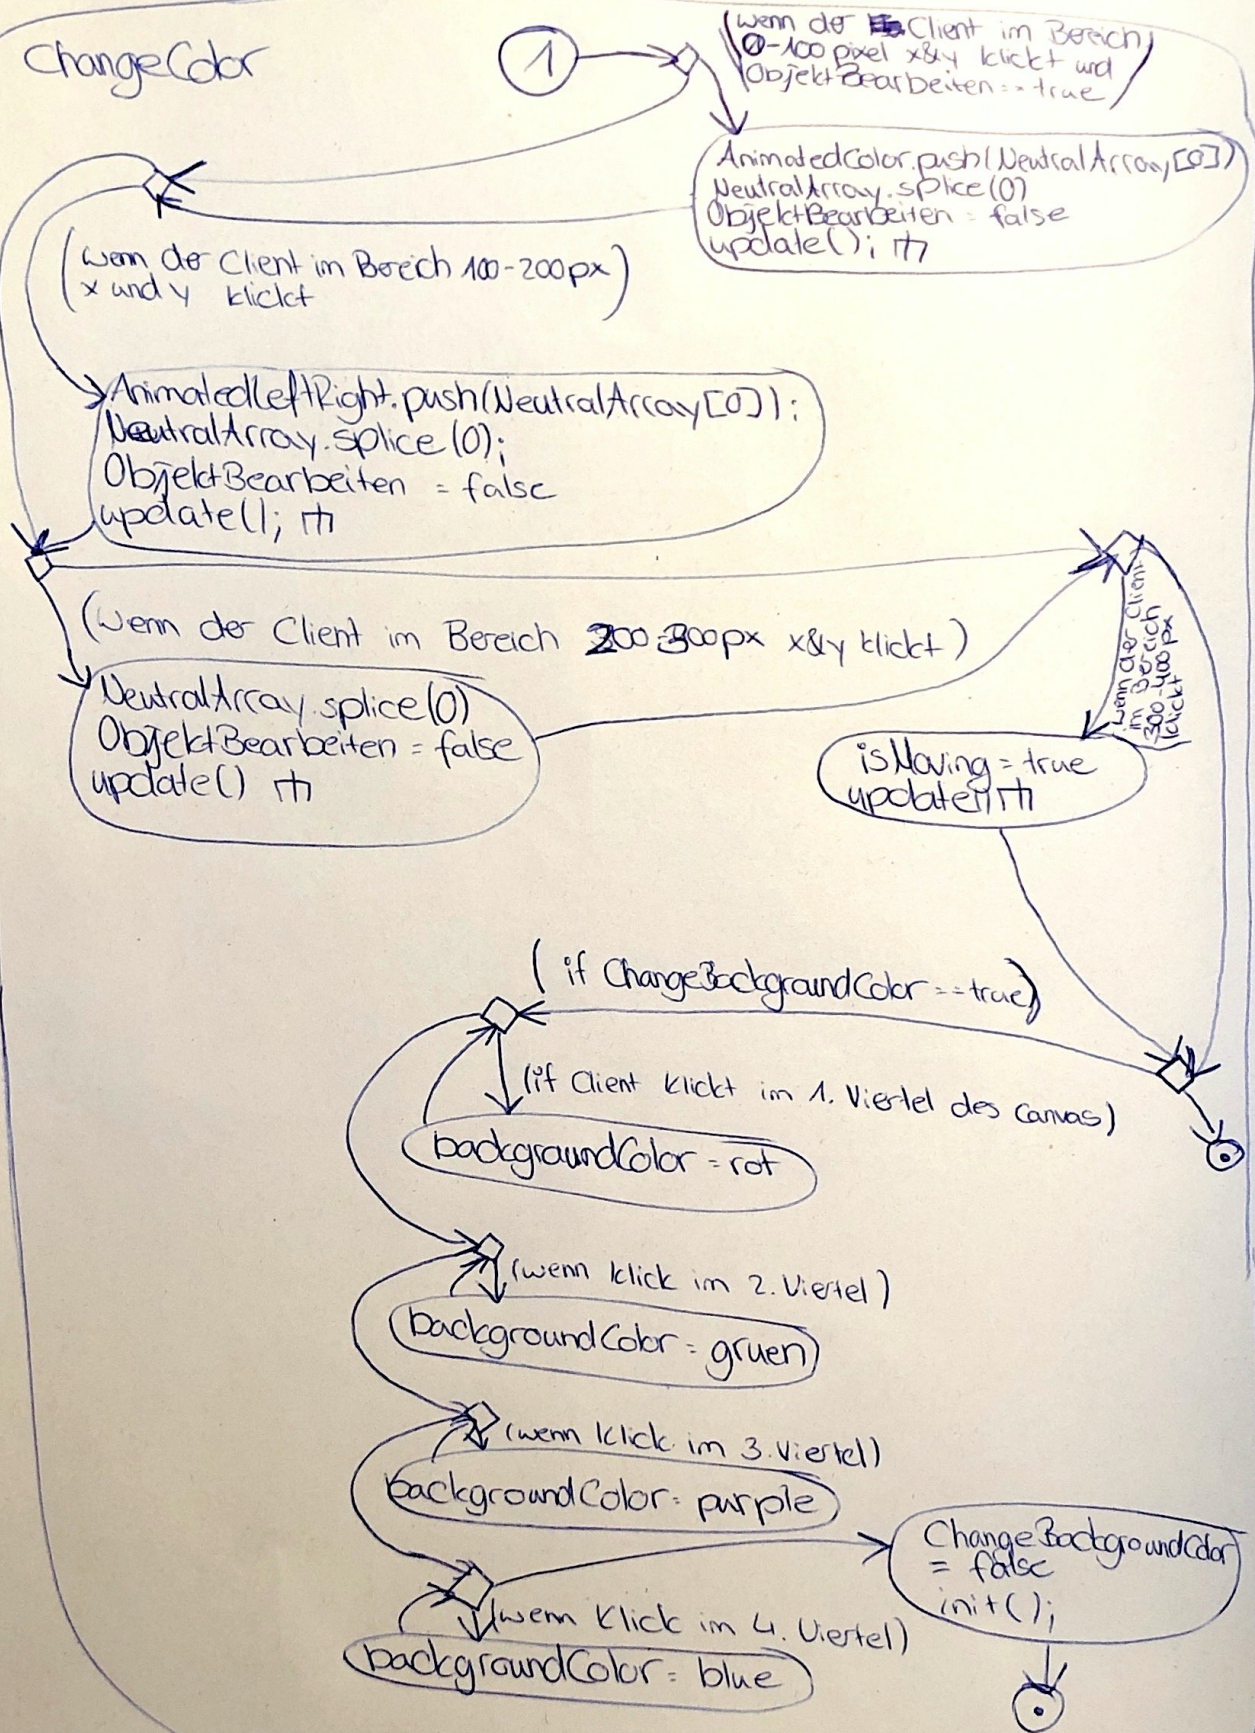 ChangeColor
1
(wenn der Client im Bereich
0-100 pixel x&y klickt und
ObjektBearbeiten == true)
AnimatedColor.push(NeutralArray[0])
NeutralArray.splice(0)
ObjektBearbeiten = false
update();
(wenn der Client im Bereich 100-200px
x und y klickt)
AnimatedLeftRight.push(NeutralArray[0]);
NeutralArray.splice(0);
ObjektBearbeiten = false
update();
(wenn der Client im Bereich 200-300px x&y klickt)
NeutralArray.splice(0)
ObjektBearbeiten = false
update()
(wenn der Client
im Bereich
300-400px
klickt
isMoving = true
update()
(if ChangeBackgroundColor == true)
(if Client klickt im 1. Viertel des Canvas)
backgroundColor = rot
(wenn klick im 2. Viertel)
backgroundColor = gruen
(wenn klick im 3. Viertel)
backgroundColor = purple
ChangeBackgroundColor
= false
init();
(wenn klick im 4. Viertel)
backgroundColor = blue